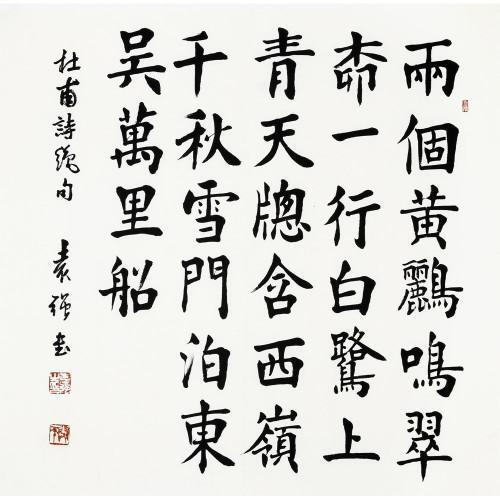 兩個黄鸝鳴翠
柳一行白鷺上
青天牕含西嶺
千秋雪門泊東
吳萬里船
杜甫詩絕句 袁强书